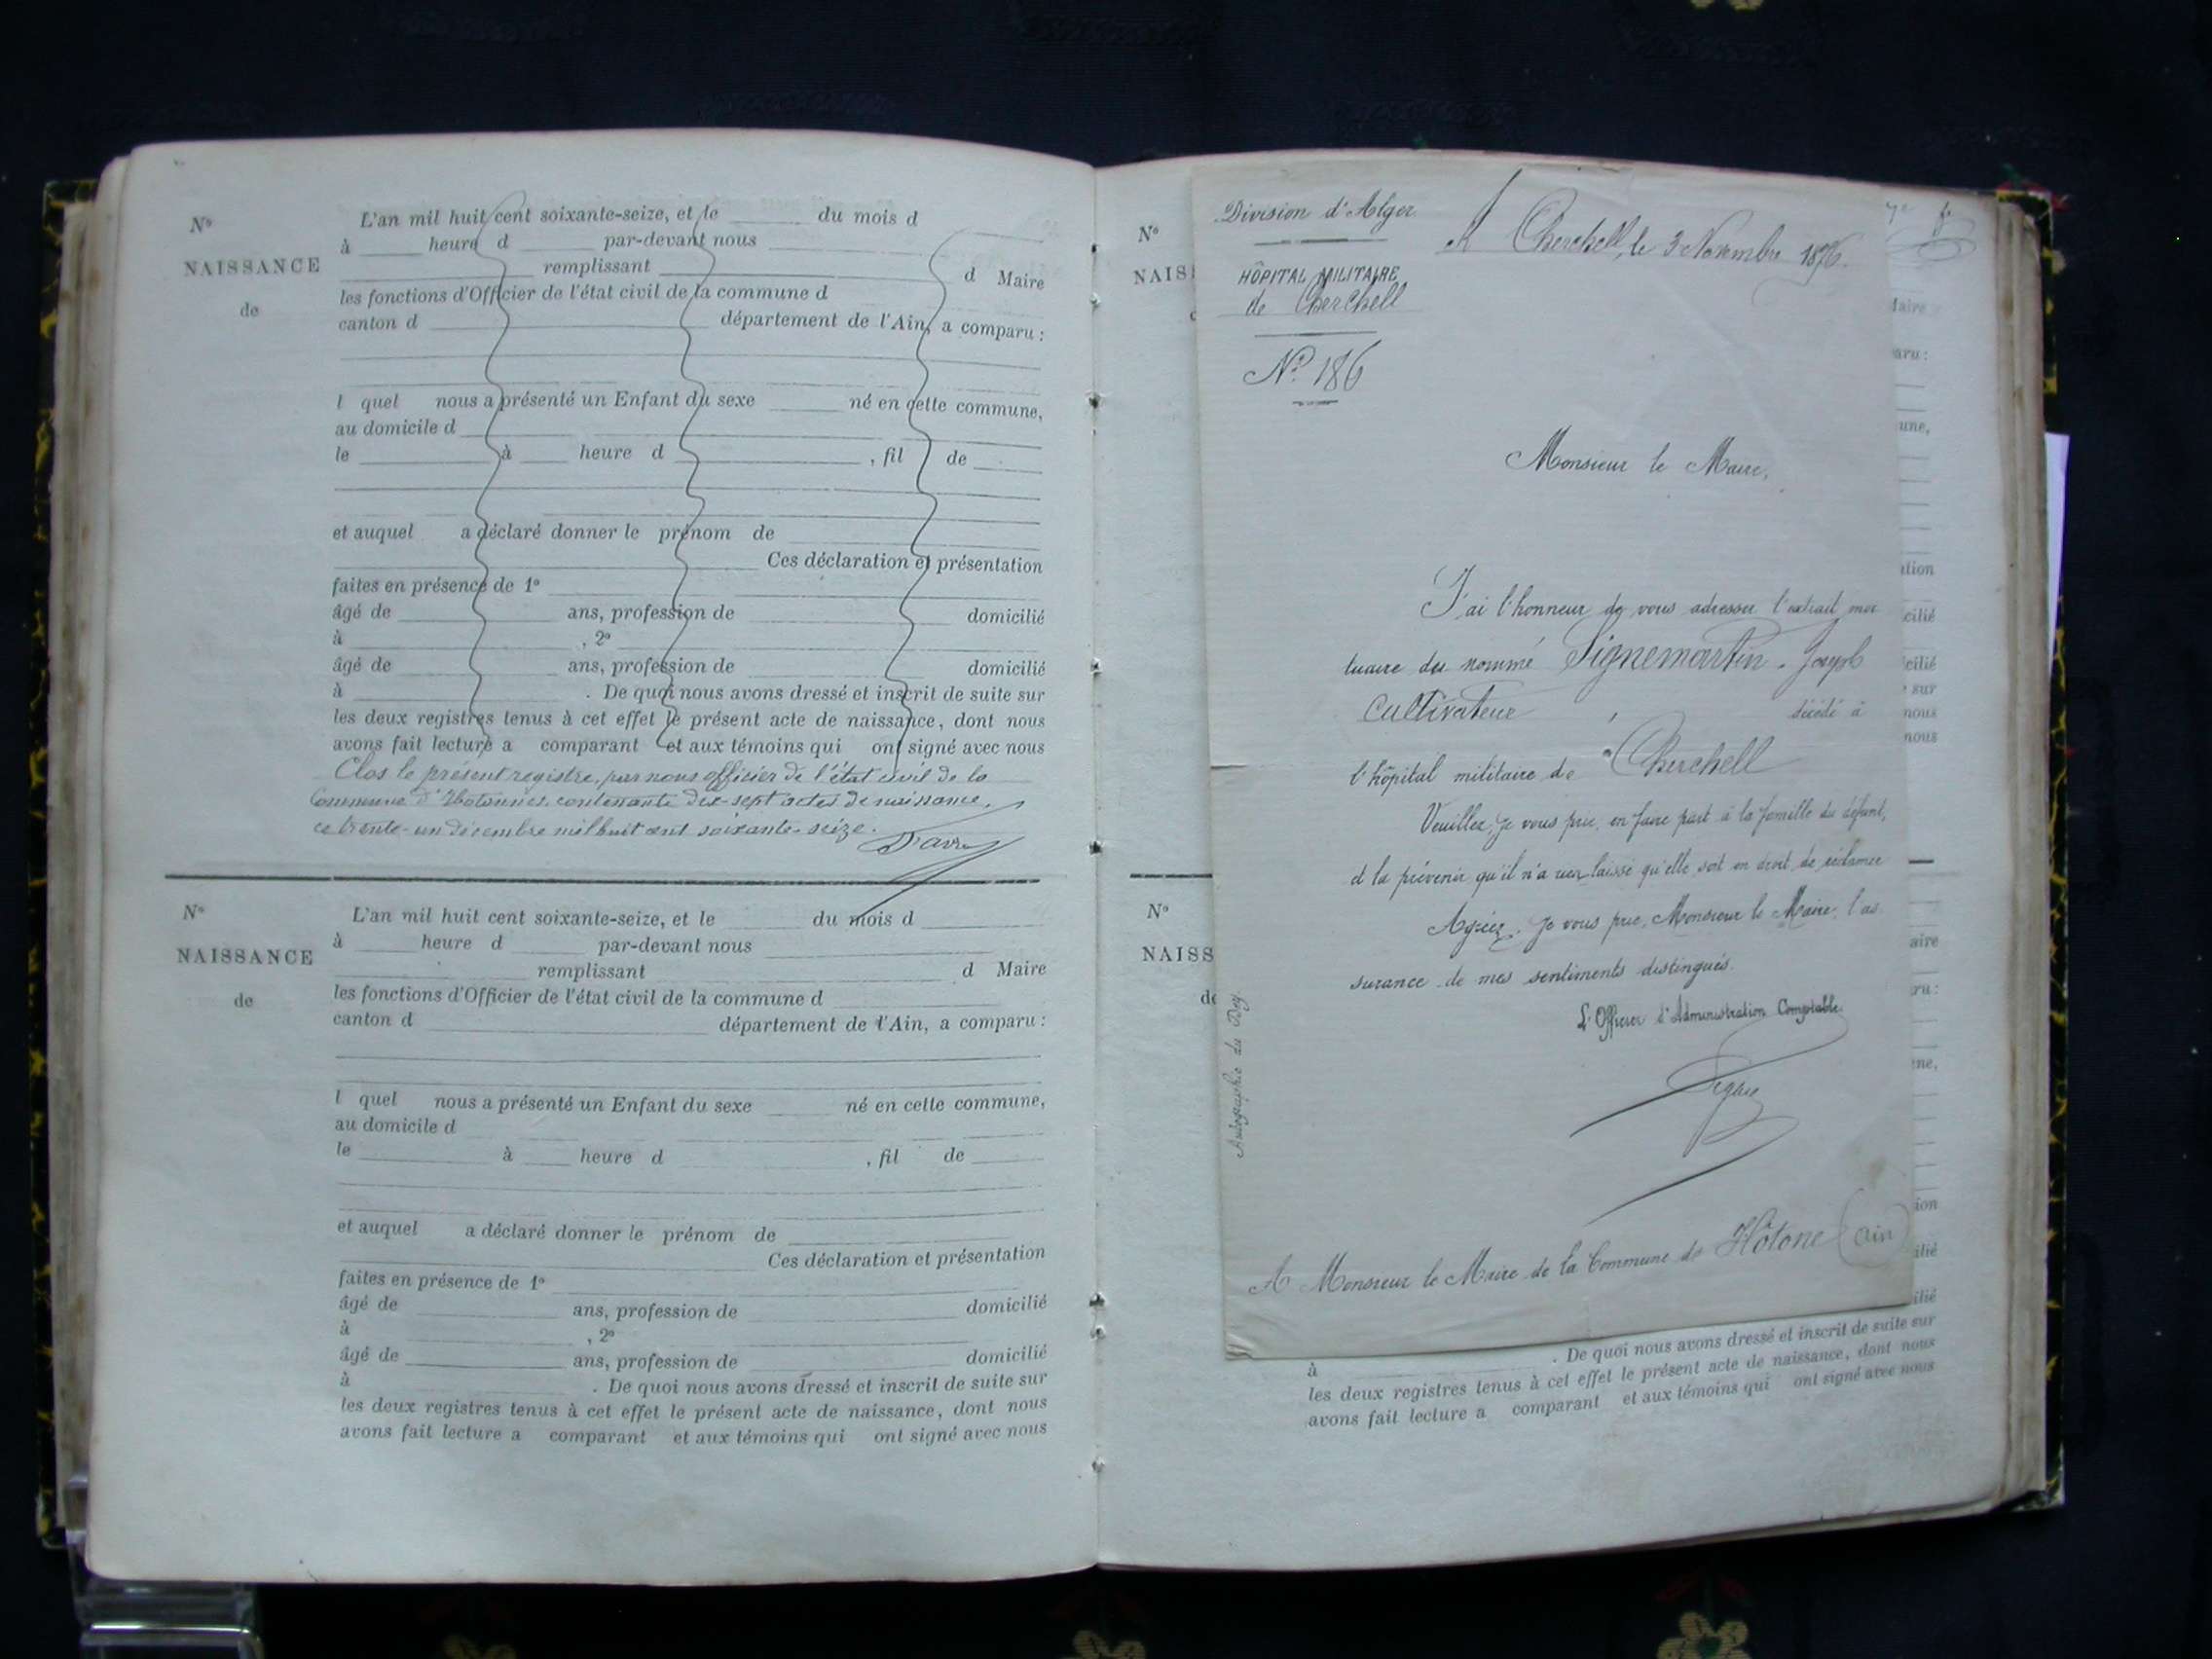 Nº
NAISSANCE
de
L'an mil huit cent soixante-seize, et le du mois d
à heure d par-devant nous
remplissant d Maire
les fonctions d'Officier de l'état civil de la commune d
canton d département de l'Ain, a comparu :
l quel nous a présenté un Enfant du sexe né en cette commune,
au domicile d
le à heure d , fil de
et auquel a déclaré donner le prénom de
Ces déclaration et présentation
faites en présence de 1º
âgé de ans, profession de domicilié
à , 2º
âgé de ans, profession de domicilié
à . De quoi nous avons dressé et inscrit de suite sur
les deux registres tenus à cet effet le présent acte de naissance, dont nous
avons fait lecture a comparant et aux témoins qui ont signé avec nous
Clos le présent registre, par nous officier de l'état civil de la
Commune d'Hotonnes, contenant dix-sept actes de naissance,
ce trente-un décembre mil huit cent soixante-seize.
Nº
NAISSANCE
de
L'an mil huit cent soixante-seize, et le du mois d
à heure d par-devant nous
remplissant d Maire
les fonctions d'Officier de l'état civil de la commune d
canton d département de l'Ain, a comparu :
l quel nous a présenté un Enfant du sexe né en cette commune,
au domicile d
le à heure d , fil de
et auquel a déclaré donner le prénom de
Ces déclaration et présentation
faites en présence de 1º
âgé de ans, profession de domicilié
à , 2º
âgé de ans, profession de domicilié
à . De quoi nous avons dressé et inscrit de suite sur
les deux registres tenus à cet effet le présent acte de naissance, dont nous
avons fait lecture a comparant et aux témoins qui ont signé avec nous
Nº
NAIS
Division d'Alger.
A Cherchell, le 3 Novembre 1876.
HÔPITAL MILITAIRE
de Cherchell
Nº 186
Monsieur le Maire,
J'ai l'honneur de vous adresser l'extrait mor
tuaire du nommé Signemartin. Joseph
Cultivateur, décédé à
l'hôpital militaire de Cherchell
Veuillez, je vous prie, en faire part à la famille du défunt,
et la prévenir qu'il n'a rien laissé qu'elle soit en droit de réclamer
Agréez, je vous prie, Monsieur le Maire, l'as
surance de mes sentiments distingués.
L'Officier d'Administration Comptable.
A Monsieur le Maire de la Commune de Hôtone (ain)
Autographie du Dey.
Nº
NAISS
de
à . De quoi nous avons dressé et inscrit de suite sur
les deux registres tenus à cet effet le présent acte de naissance, dont nous
avons fait lecture a comparant et aux témoins qui ont signé avec nous
Maire
aru :
une,
ation
cilié
cilié
sur
nous
nous
aire
ru :
ne,
ion
ilié
ilié